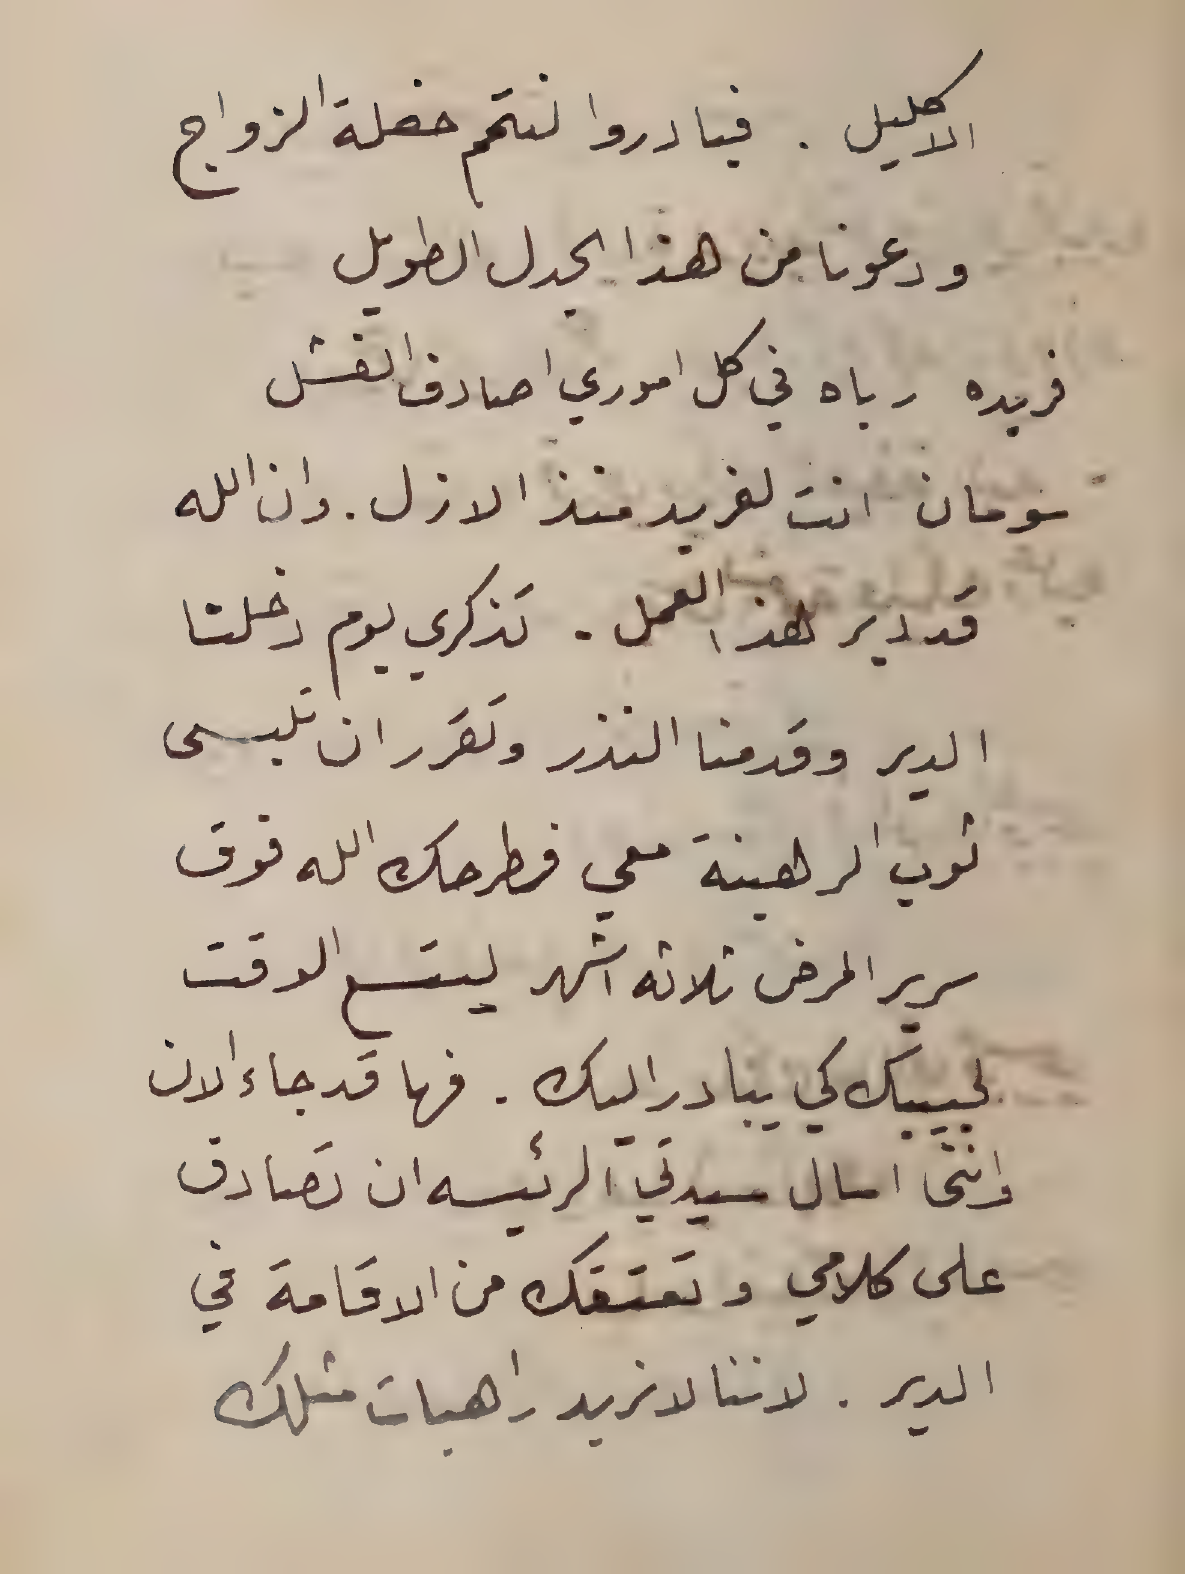 الاكليل . فبادروا لنتمم حفلة الزواج
ودعونا من هذا الجدل الطويل
فريده رباه في كل اموري اصادف الفشل
سوسان انت لفريد منذ الازل . وان الله
قد دبر لهذا العمل . تذكري يوم دخلنا
الدير وقدمنا النذر وتقرر ان تلبسي
ثوب الرهبنة معي فطرحك الله فوق
سرير المرض ثلاثه اشهر ليتسع الوقت
لحبيبك كي يبادر اليك . فها قد جاء الان
وانني اسال سيدتي الرئيسه ان تصادق
على كلامي وتعتقك من الاقامة في
الدير . لاننا لا نريد راهبات مثلك